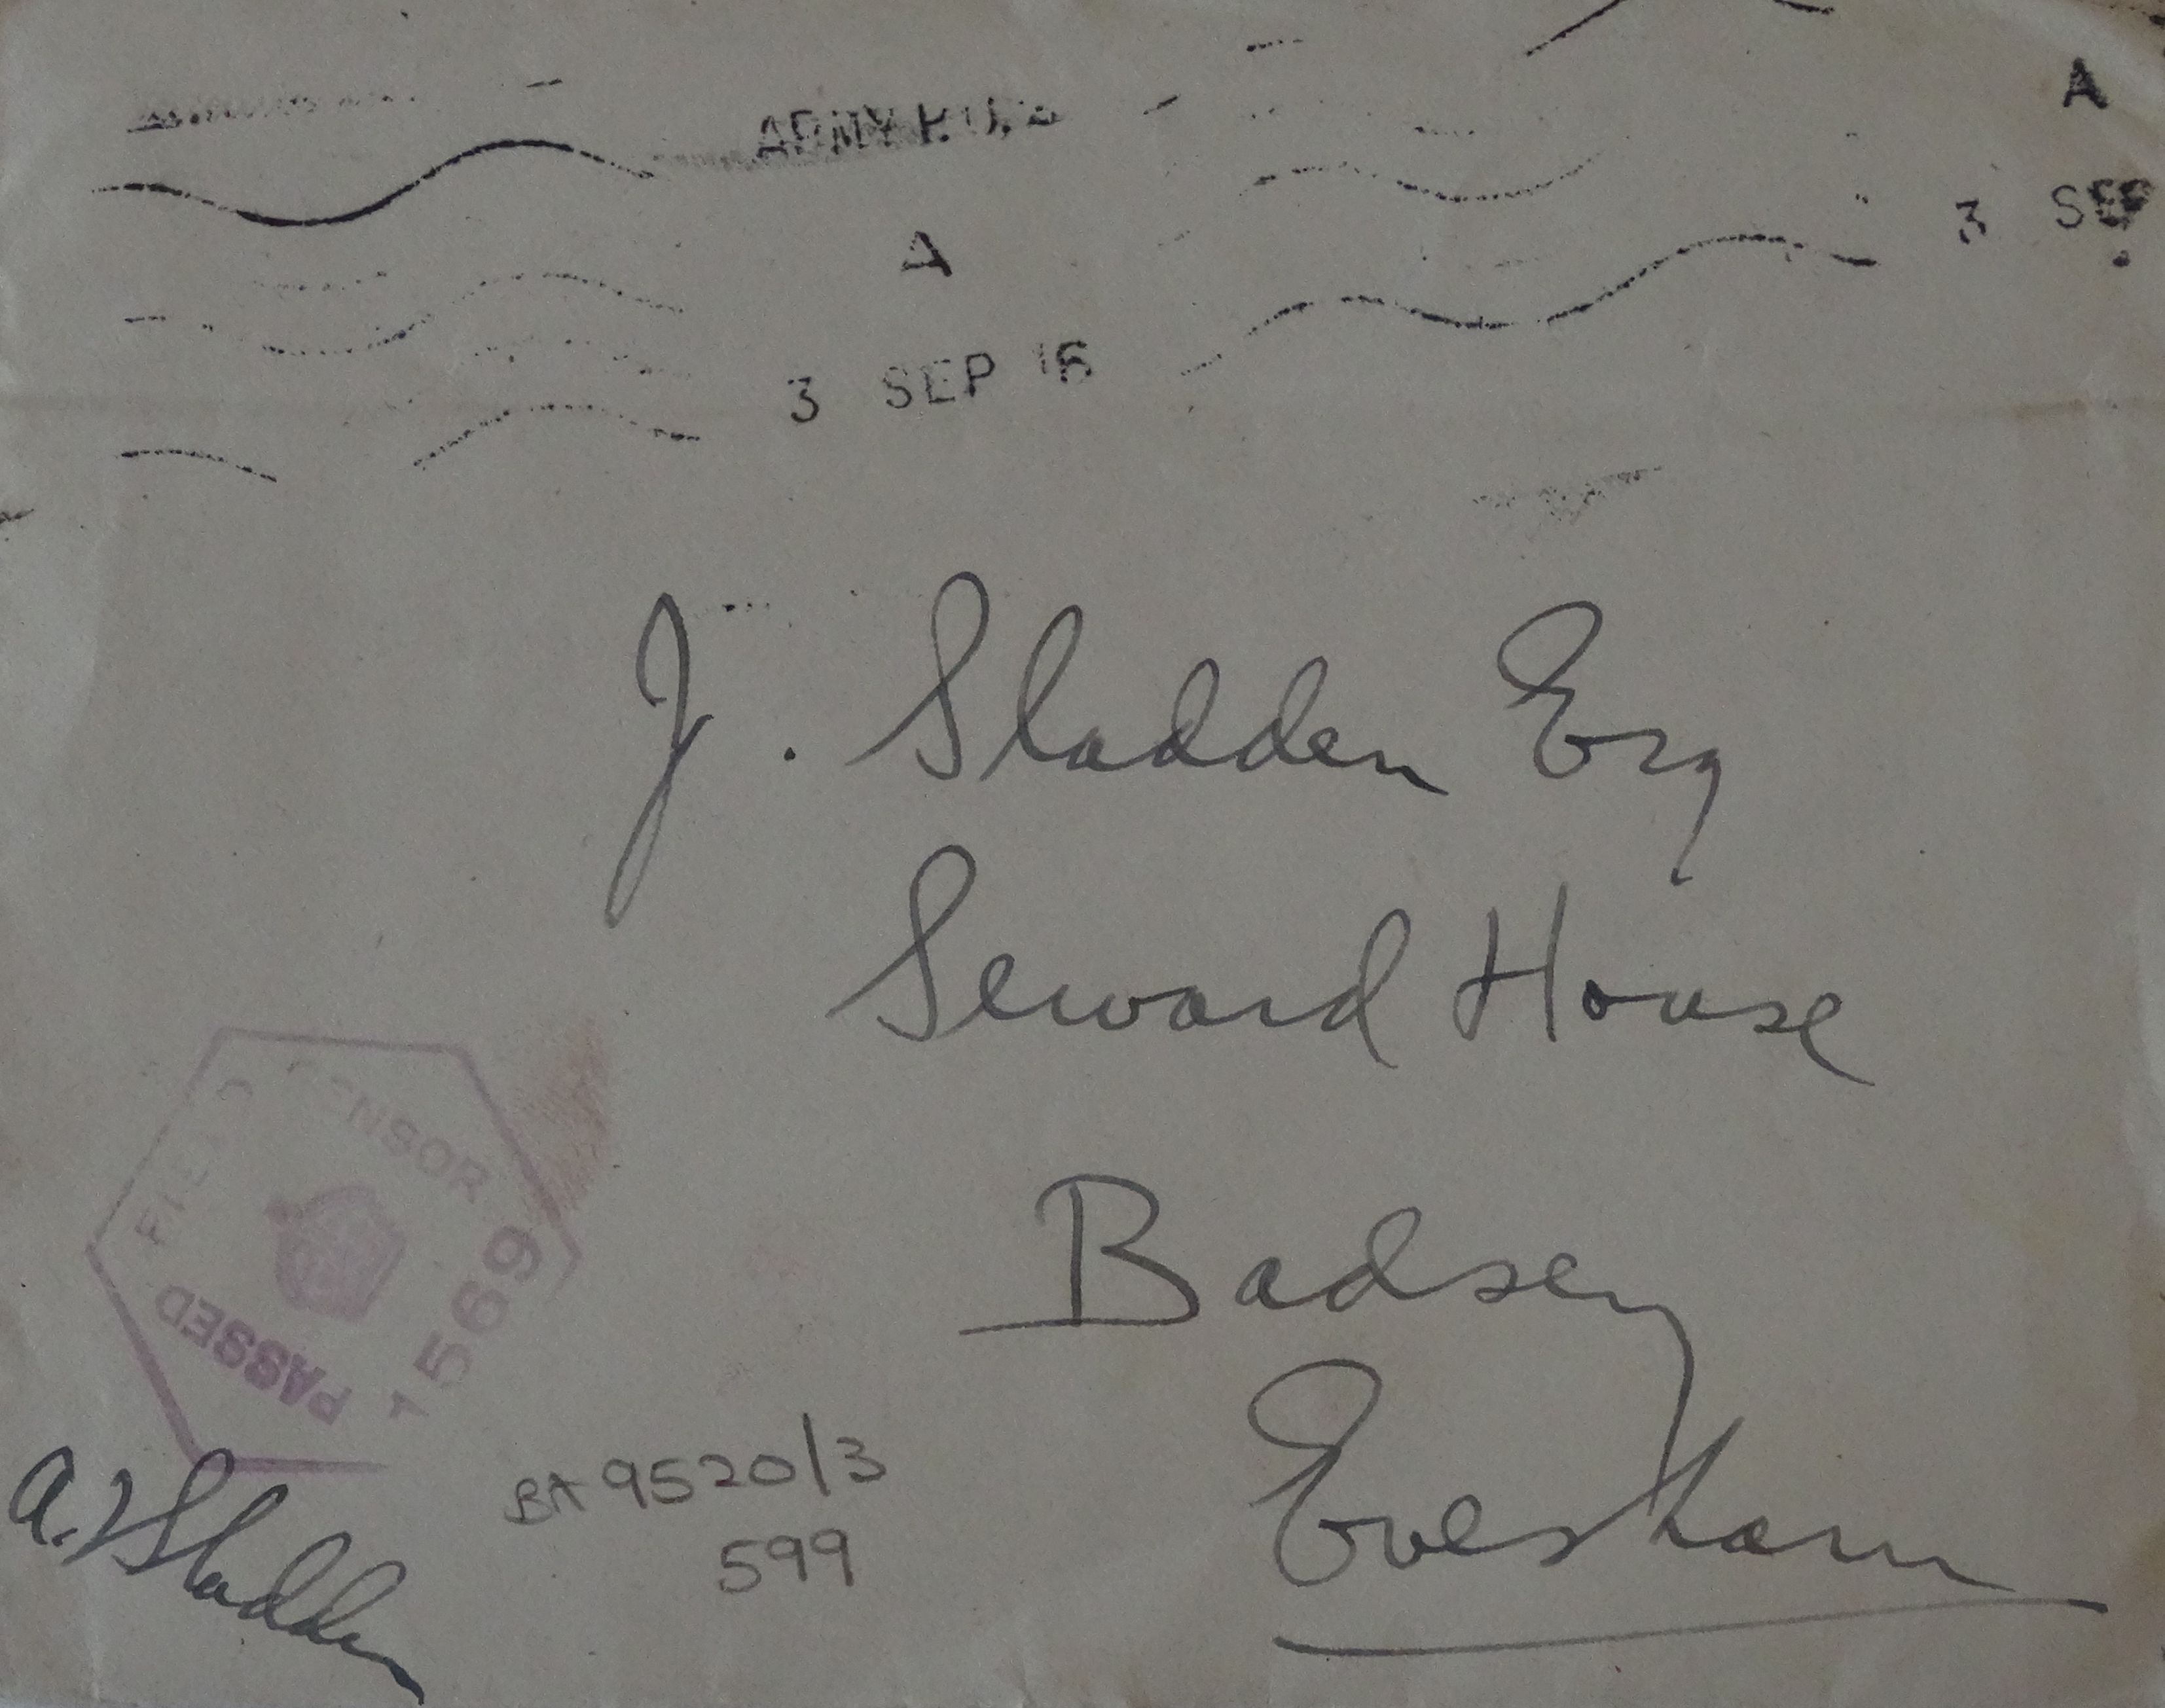 ARMY P.O. 2
A
A
3 SEP 16
3 SEP
J. Sladden Esq
Seward House
Badsey
Evesham
FIELD CENSOR
1569
PASSED
A. F. Sladden
BA 9520/3
599